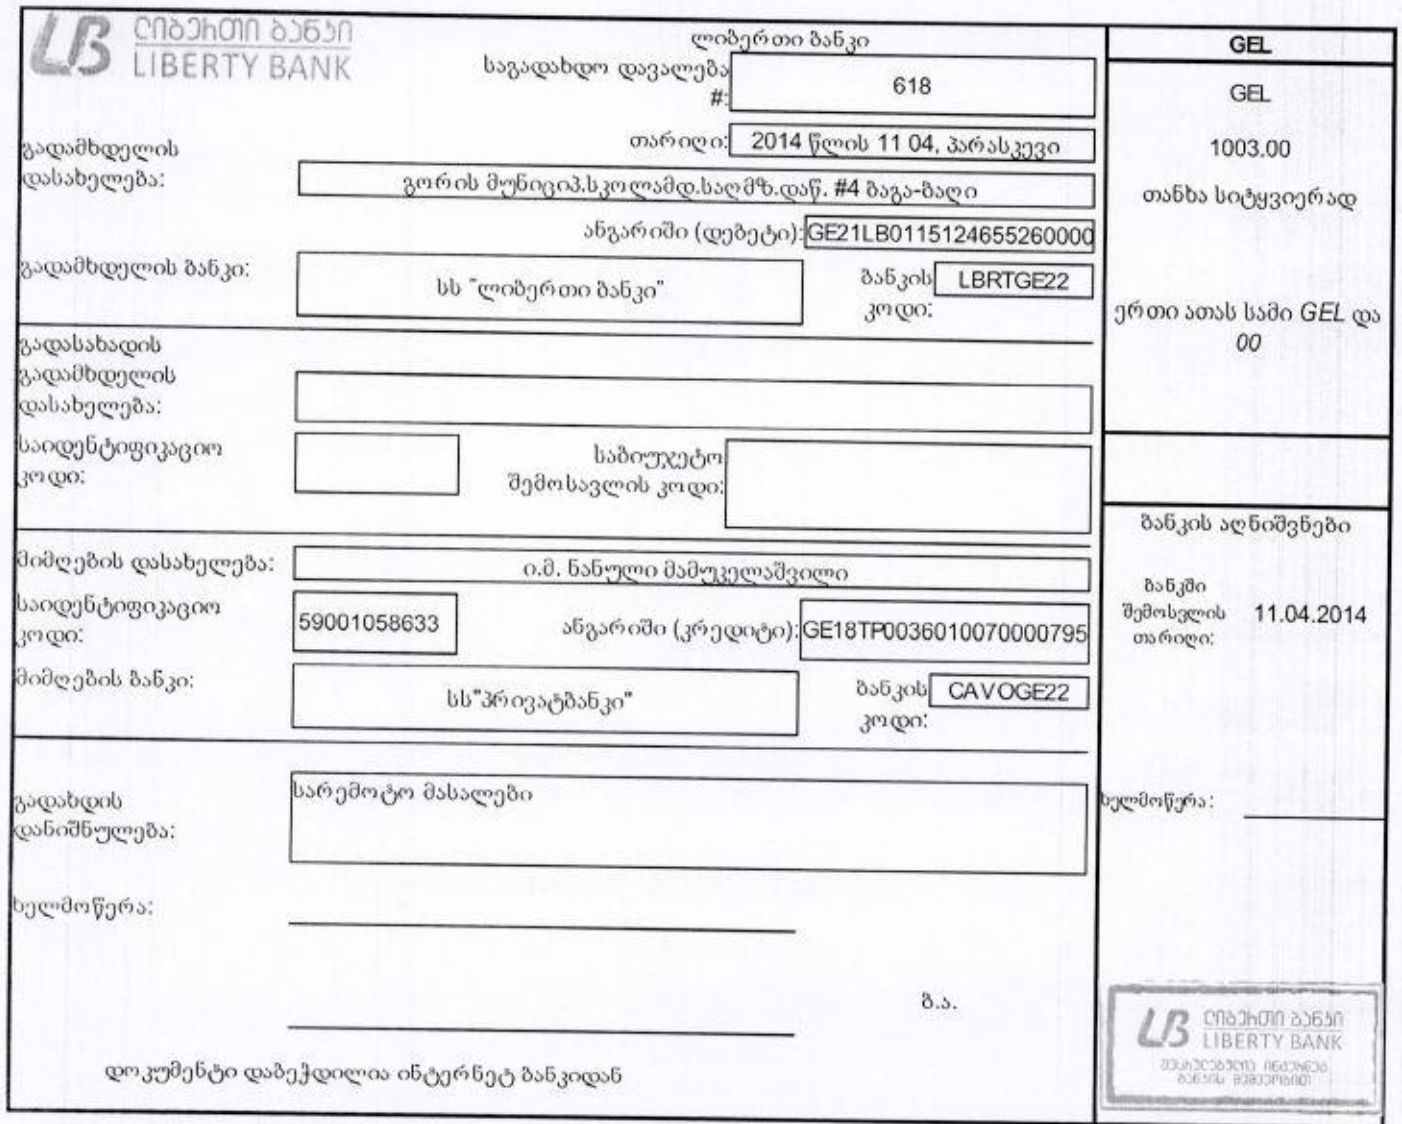 ლიბერთი ბანკი
LIBERTY BANK
ლიბერთი ბანკი
საგადახდო დავალება #: 618
თარიღი: 2014 წლის 11 04, პარასკევი
გადამხდელის დასახელება: გორის მუნიციპ.სკოლამდ.საღმზ.დაწ. #4 ბაგა-ბაღი
ანგარიში (დებეტი): GE21LB0115124655260000
გადამხდელის ბანკი: სს "ლიბერთი ბანკი"
ბანკის კოდი: LBRTGE22
გადასახადის გადამხდელის დასახელება:
საიდენტიფიკაციო კოდი:
საბიუჯეტო შემოსავლის კოდი:
მიმღების დასახელება: ი.მ. ნანული მამუკელაშვილი
საიდენტიფიკაციო კოდი: 59001058633
ანგარიში (კრედიტი): GE18TP0036010070000795
მიმღების ბანკი: სს"პრივატბანკი"
ბანკის კოდი: CAVOGE22
გადახდის დანიშნულება: სარემოტო მასალები
ხელმოწერა:
ბ.ა.
დოკუმენტი დაბეჭდილია ინტერნეტ ბანკიდან
GEL
GEL
1003.00
თანხა სიტყვიერად
ერთი ათას სამი GEL და
00
ბანკის აღნიშვნები
ბანკში შემოსვლის თარიღი: 11.04.2014
ხელმოწერა:
ლიბერთი ბანკი
LIBERTY BANK
შესრულებულია ინტერნეტ
ბანკის მეშვეობით